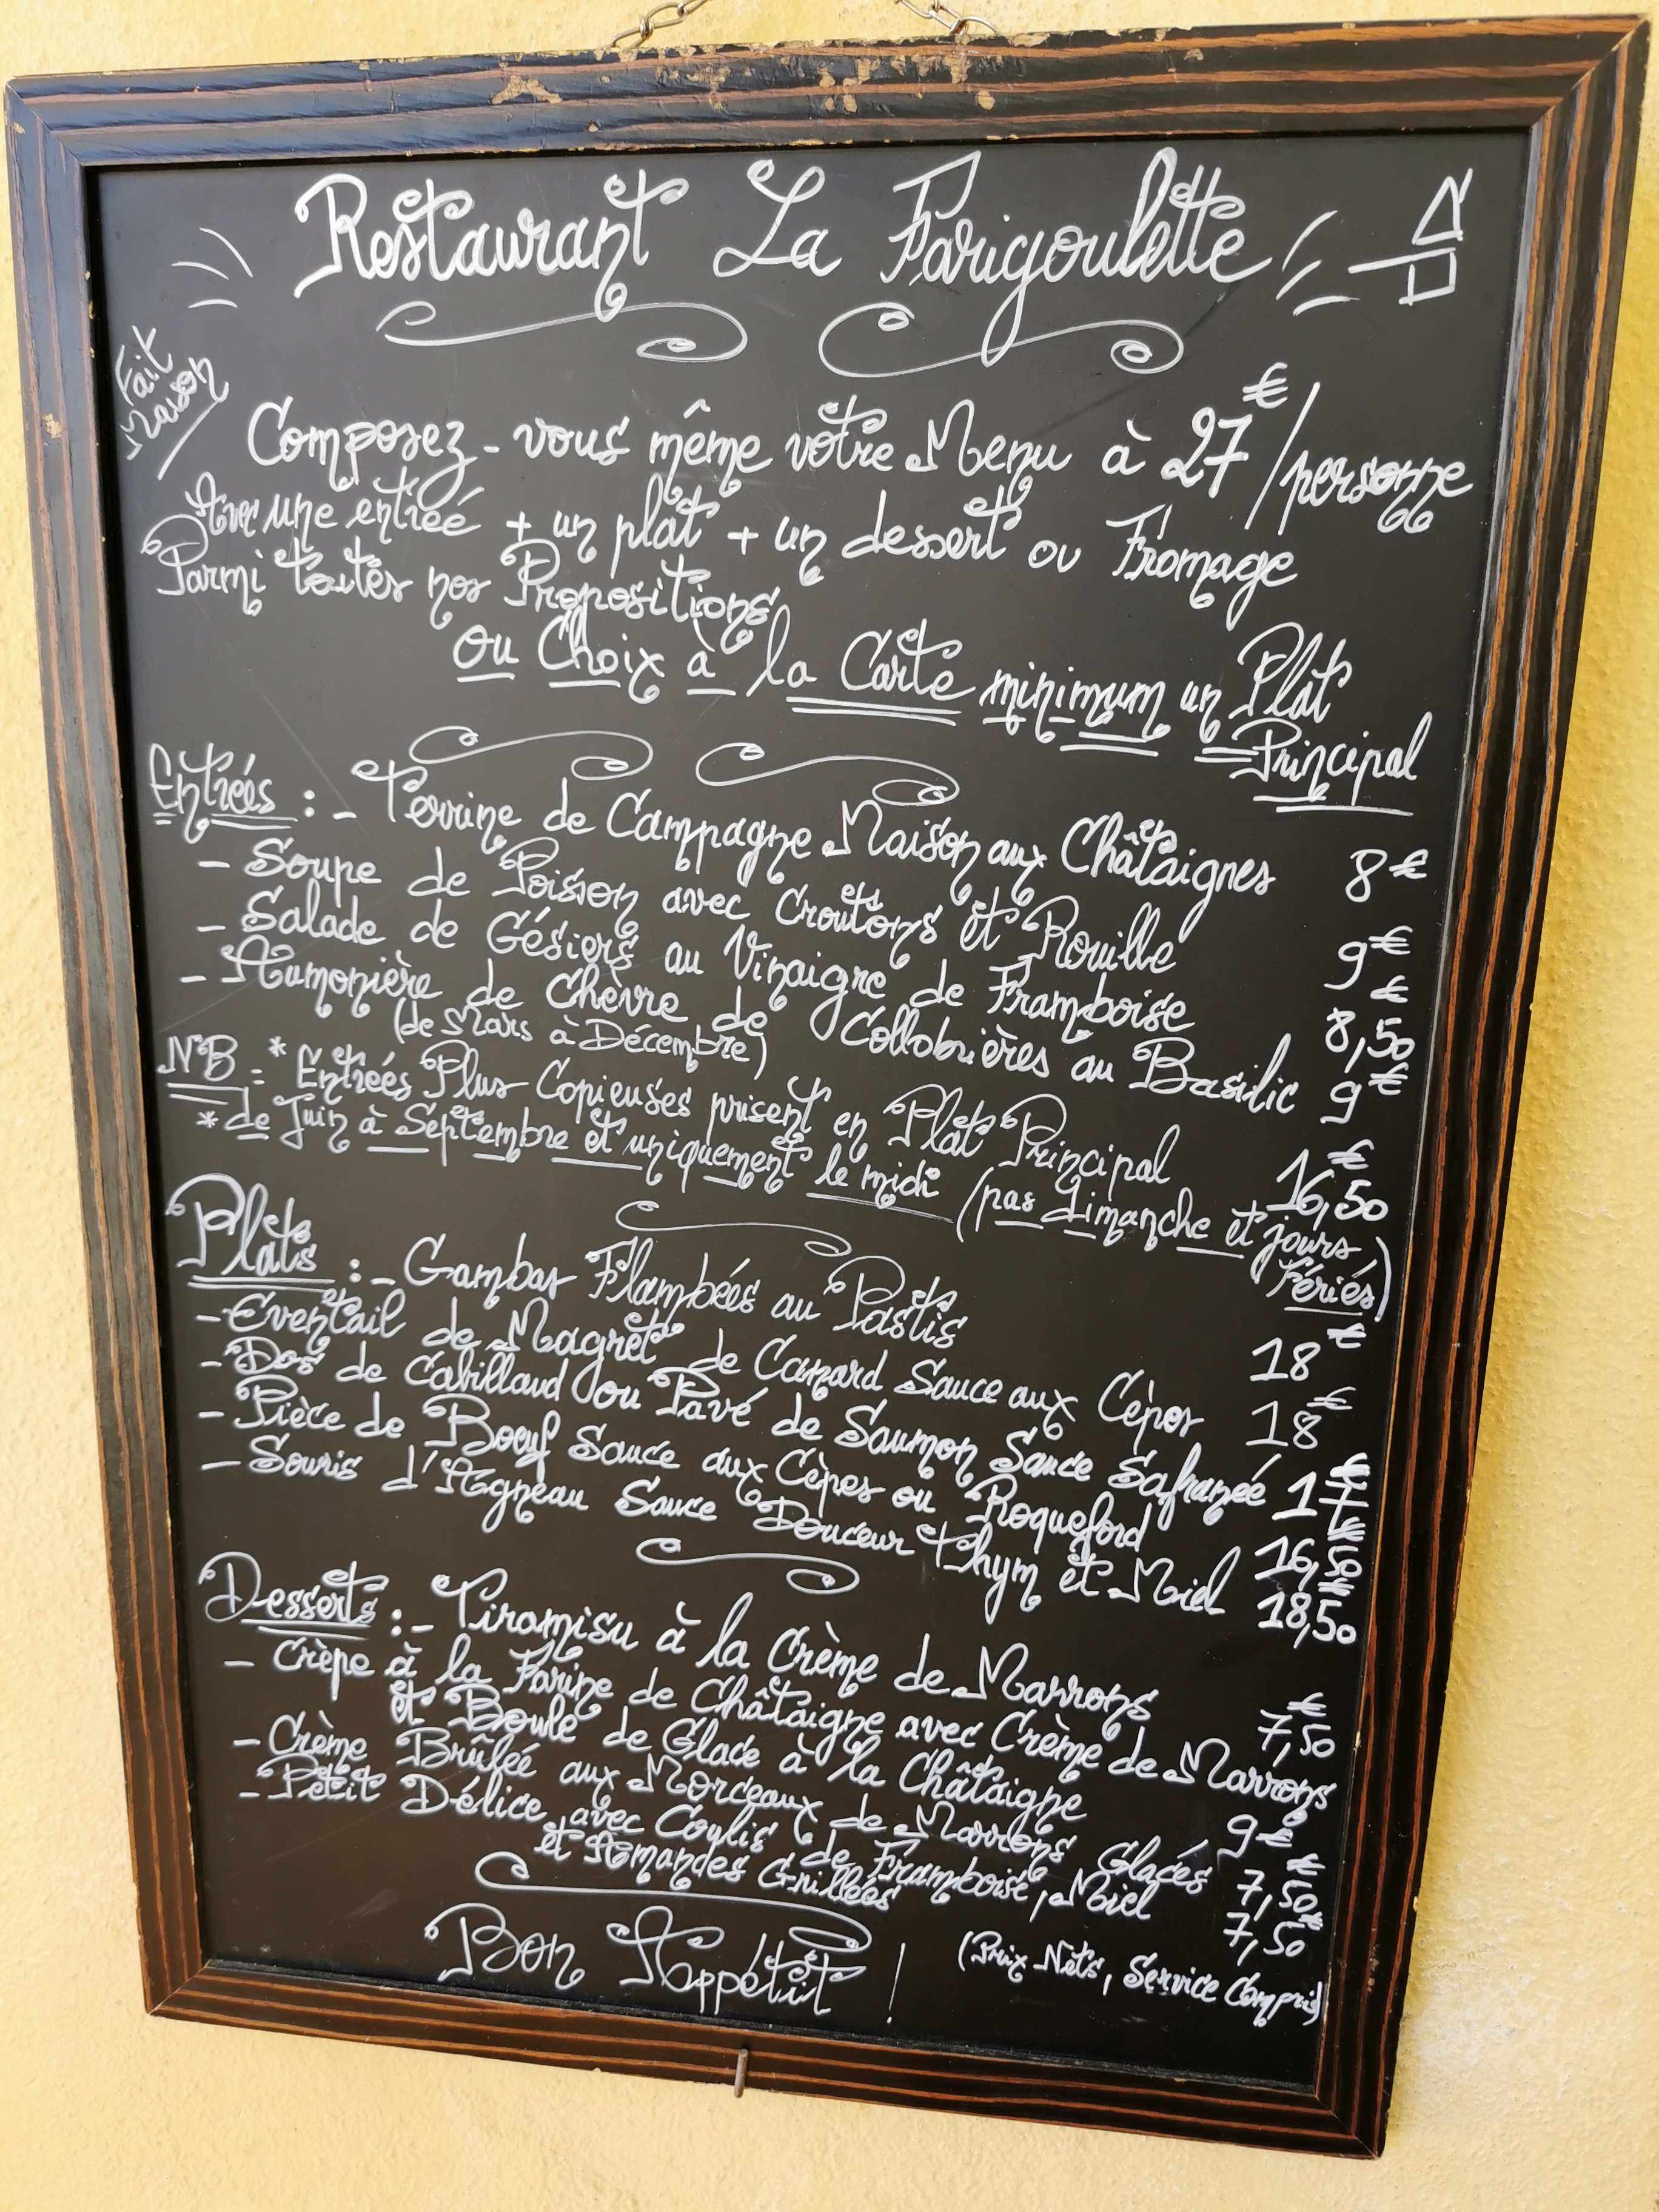 Restaurant La Farigoulette
Fait
Maison
Composez-vous même votre Menu à 27€/personne
Avec une entrée + un plat + un dessert ou Fromage
Parmi toutes nos Propositions
ou Choix à la Carte minimum un Plat
Principal
Entrées : - Terrine de Campagne Maison aux Châtaignes 8€
- Soupe de Poisson avec Croutons et Rouille 9€
- Salade de Gésiers au Vinaigre de Framboise 8,50€
- Aumonière de Chèvre de Collobrières au Basilic 9€
(de Mars à Décembre)
NB : * Entrées Plus Copieuses prisent en Plat Principal 16,50€
* de Juin à Septembre et uniquement le midi (pas dimanche et jours
fériés)
Plats : - Gambas Flambées au Pastis 18€
- Eventail de Magret de Canard Sauce aux Cèpes 18€
- Dos de Cabillaud ou Pavé de Saumon Sauce Safranée 17€
- Pièce de Boeuf Sauce aux Cèpes ou Roqueford 16,50€
- Souris d'Agneau Sauce Douceur Thym et Miel 18,50€
Desserts : - Tiramisu à la Crème de Marrons 7,50€
- Crèpe à la Farine de Châtaigne avec Crème de Marrons
et Boule de Glace à la Châtaigne 9€
- Crème Brûlée aux Morceaux de Marrons Glacés 7,50€
- Petit Délice avec Coulis de Framboise, Miel 7,50€
et Amandes Grillées
Bon Appétit !
(Prix Nets, Service Compris)